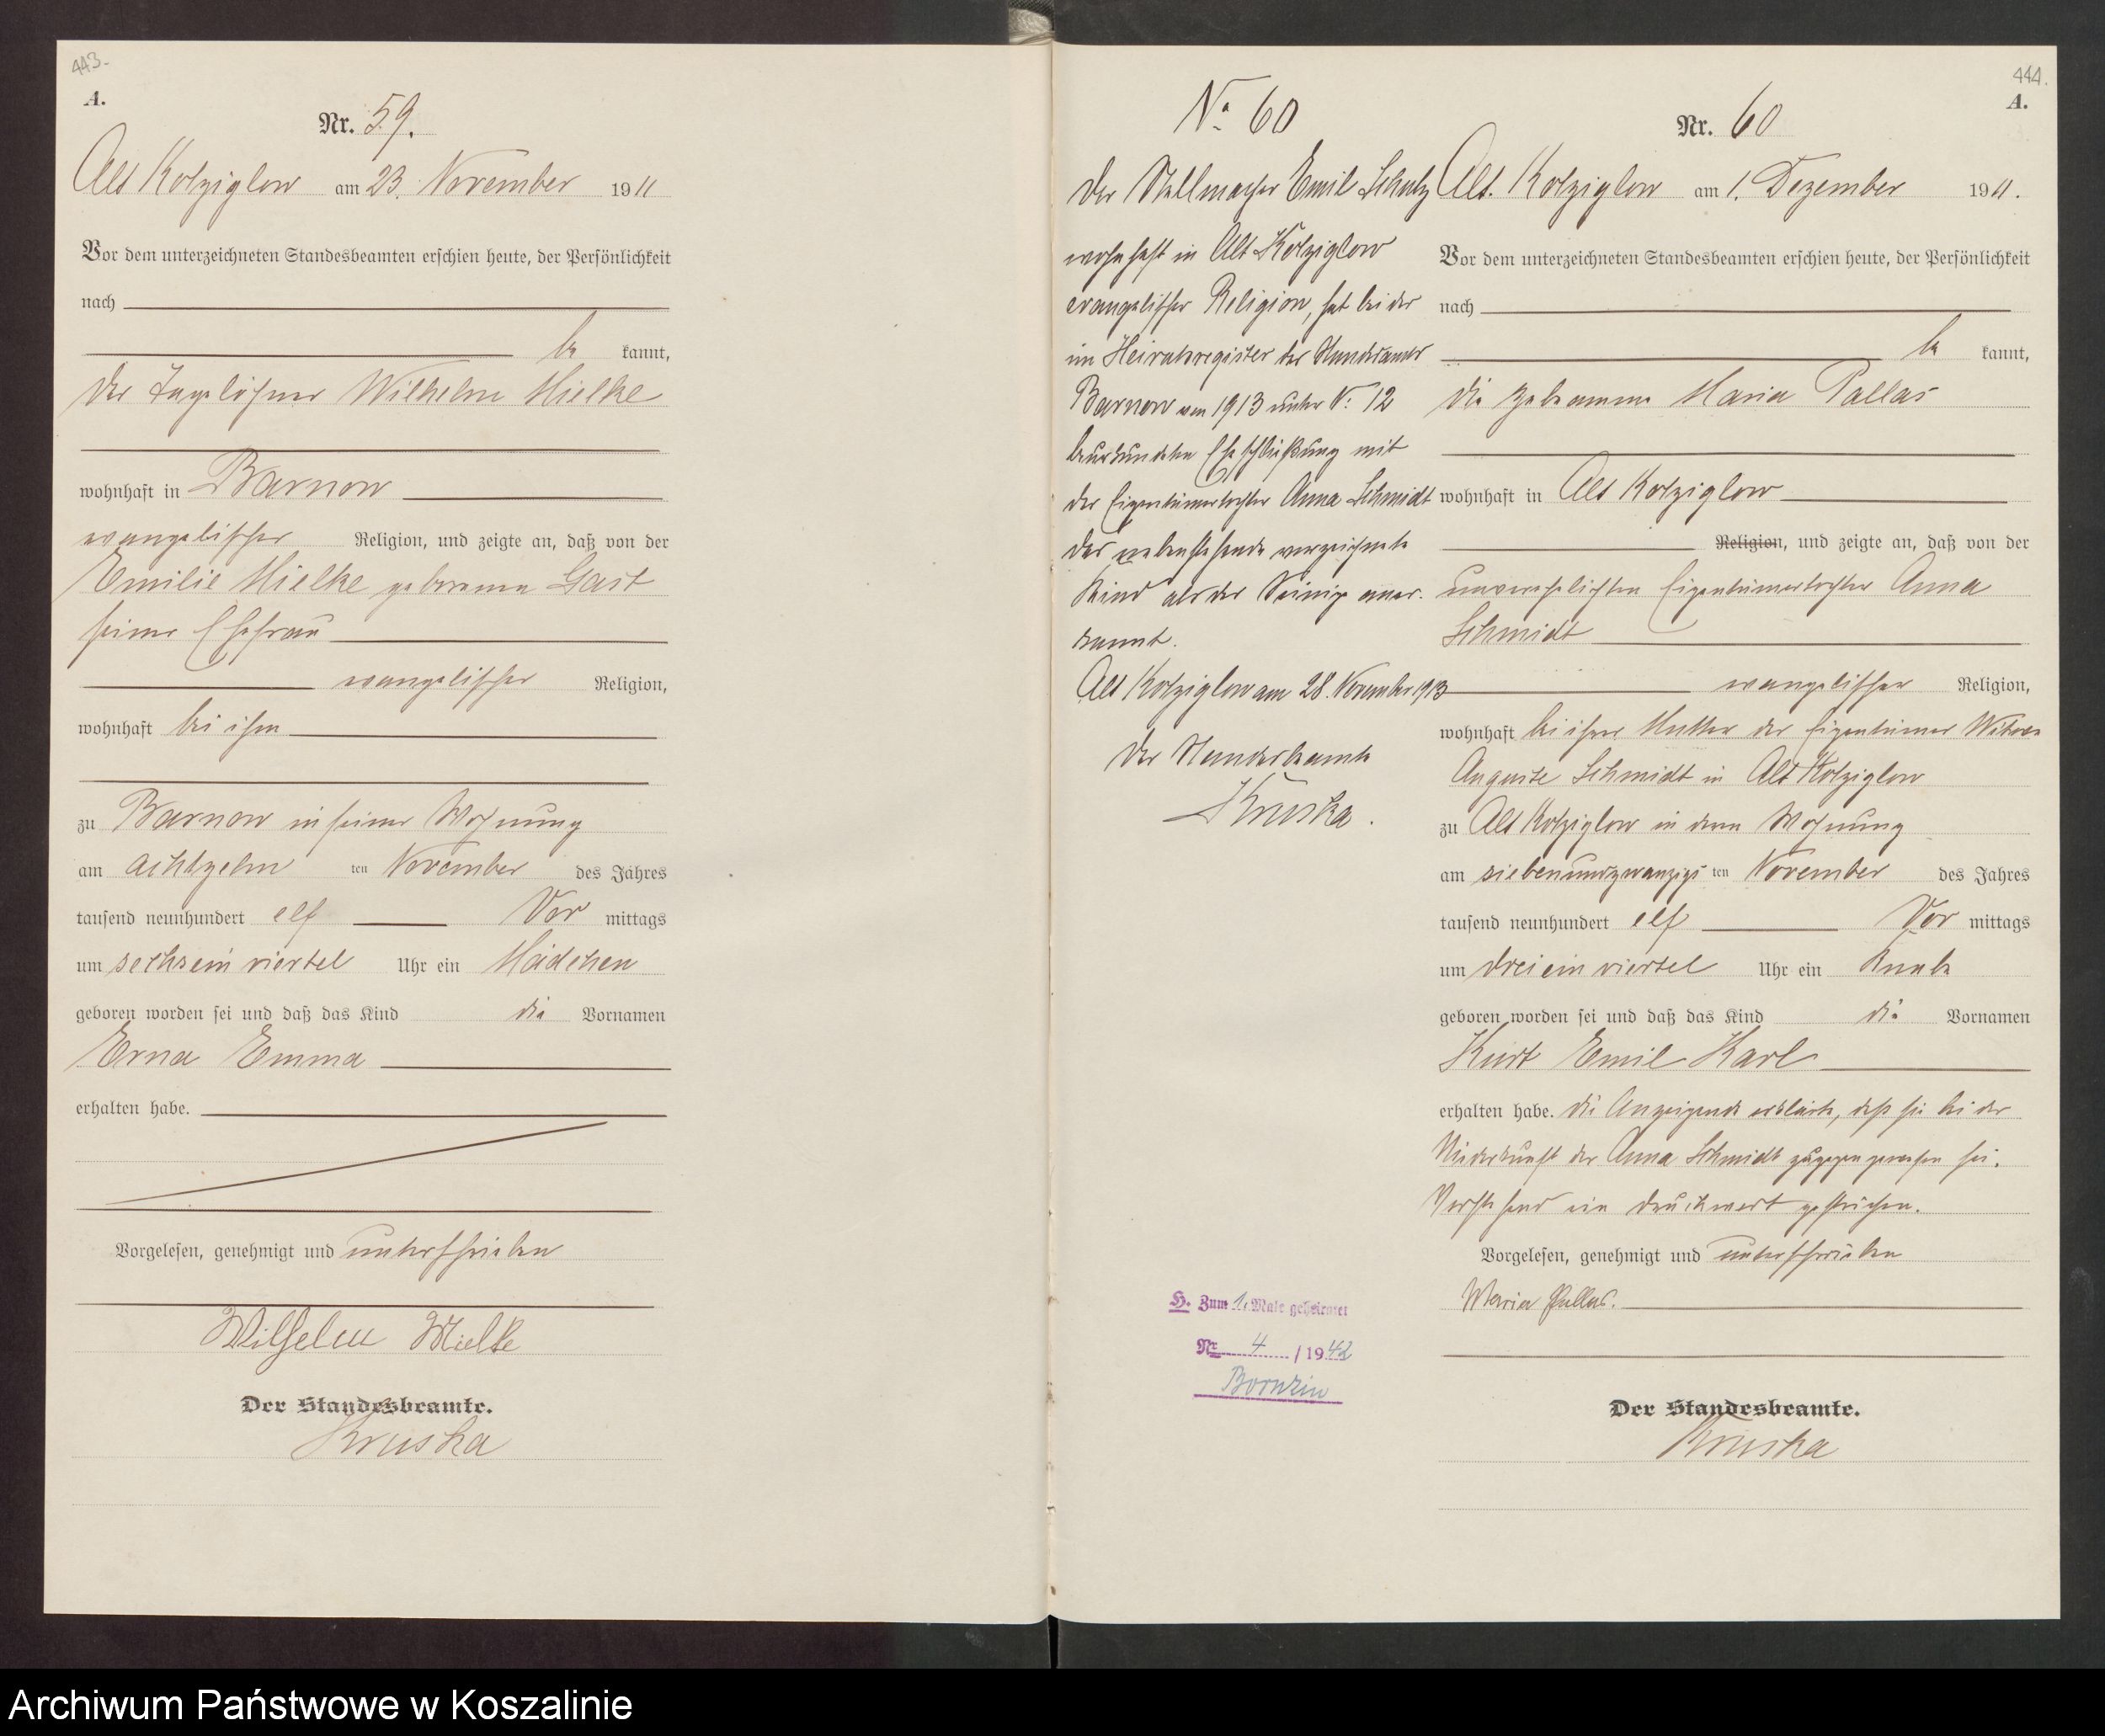 443.
A.
Nr. 59.
Alt Kolziglow am 23. November 1911
Vor dem unterzeichneten Standesbeamten erschien heute, der Persönlichkeit
nach
be kannt,
der Tagelöhner Wilhelm Mielke
wohnhaft in Barnow
evangelischer Religion, und zeigte an, daß von der
Emilie Mielke geborenen Gast
seiner Ehefrau
evangelischer Religion,
wohnhaft bei ihm
zu Barnow in seiner Wohnung
am achtzehn ten November des Jahres
tausend neunhundert elf Vor mittags
um sechseinviertel Uhr ein Mädchen
geboren worden sei und daß das Kind die Vornamen
Erna Emma
erhalten habe.
Vorgelesen, genehmigt und unterschrieben
Wilhelm Mielke
Der Standesbeamte.
Kruska
No 60
Der Stellmacher Emil Schulz
wohnhaft in Alt Kolziglow
evangelischer Religion, hat bei der
im Heiratsregister des Standesamts
Barnow von 1913 unter No 12
beurkundeten Eheschließung mit
der Eigentümertochter Anna Schmidt
das nebenstehende verzeichnete
Kind als das Seinige aner-
kannt.
Alt Kolziglow am 28. November 1913
Der Standesbeamte
Kruska.
H. Zum 1. Male geheiratet
Nr. 4 / 1942
Bornzin
444.
A.
Nr. 60
Alt. Kolziglow am 1. Dezember 1911.
Vor dem unterzeichneten Standesbeamten erschien heute, der Persönlichkeit
nach
be kannt,
die Hebamme Maria Pallas
wohnhaft in Alt Kolziglow
Religion, und zeigte an, daß von der
unverehelichten Eigentümertochter Anna
Schmidt
evangelischer Religion,
wohnhaft bei ihrer Mutter der Eigentümer Witwe
Auguste Schmidt in Alt Kolziglow
zu Alt Kolziglow in deren Wohnung
am siebenundzwanzigs ten November des Jahres
tausend neunhundert elf Vor mittags
um dreieinviertel Uhr ein Knabe
geboren worden sei und daß das Kind die Vornamen
Kurt Emil Karl
erhalten habe. Die Anzeigende erklärte, daß sie bei der
Niederkunft der Anna Schmidt zugegen gewesen sei.
Vorstehend ein Druckwort gestrichen.
Vorgelesen, genehmigt und unterschrieben
Maria Pallas.
Der Standesbeamte.
Kruska
Archiwum Państwowe w Koszalinie